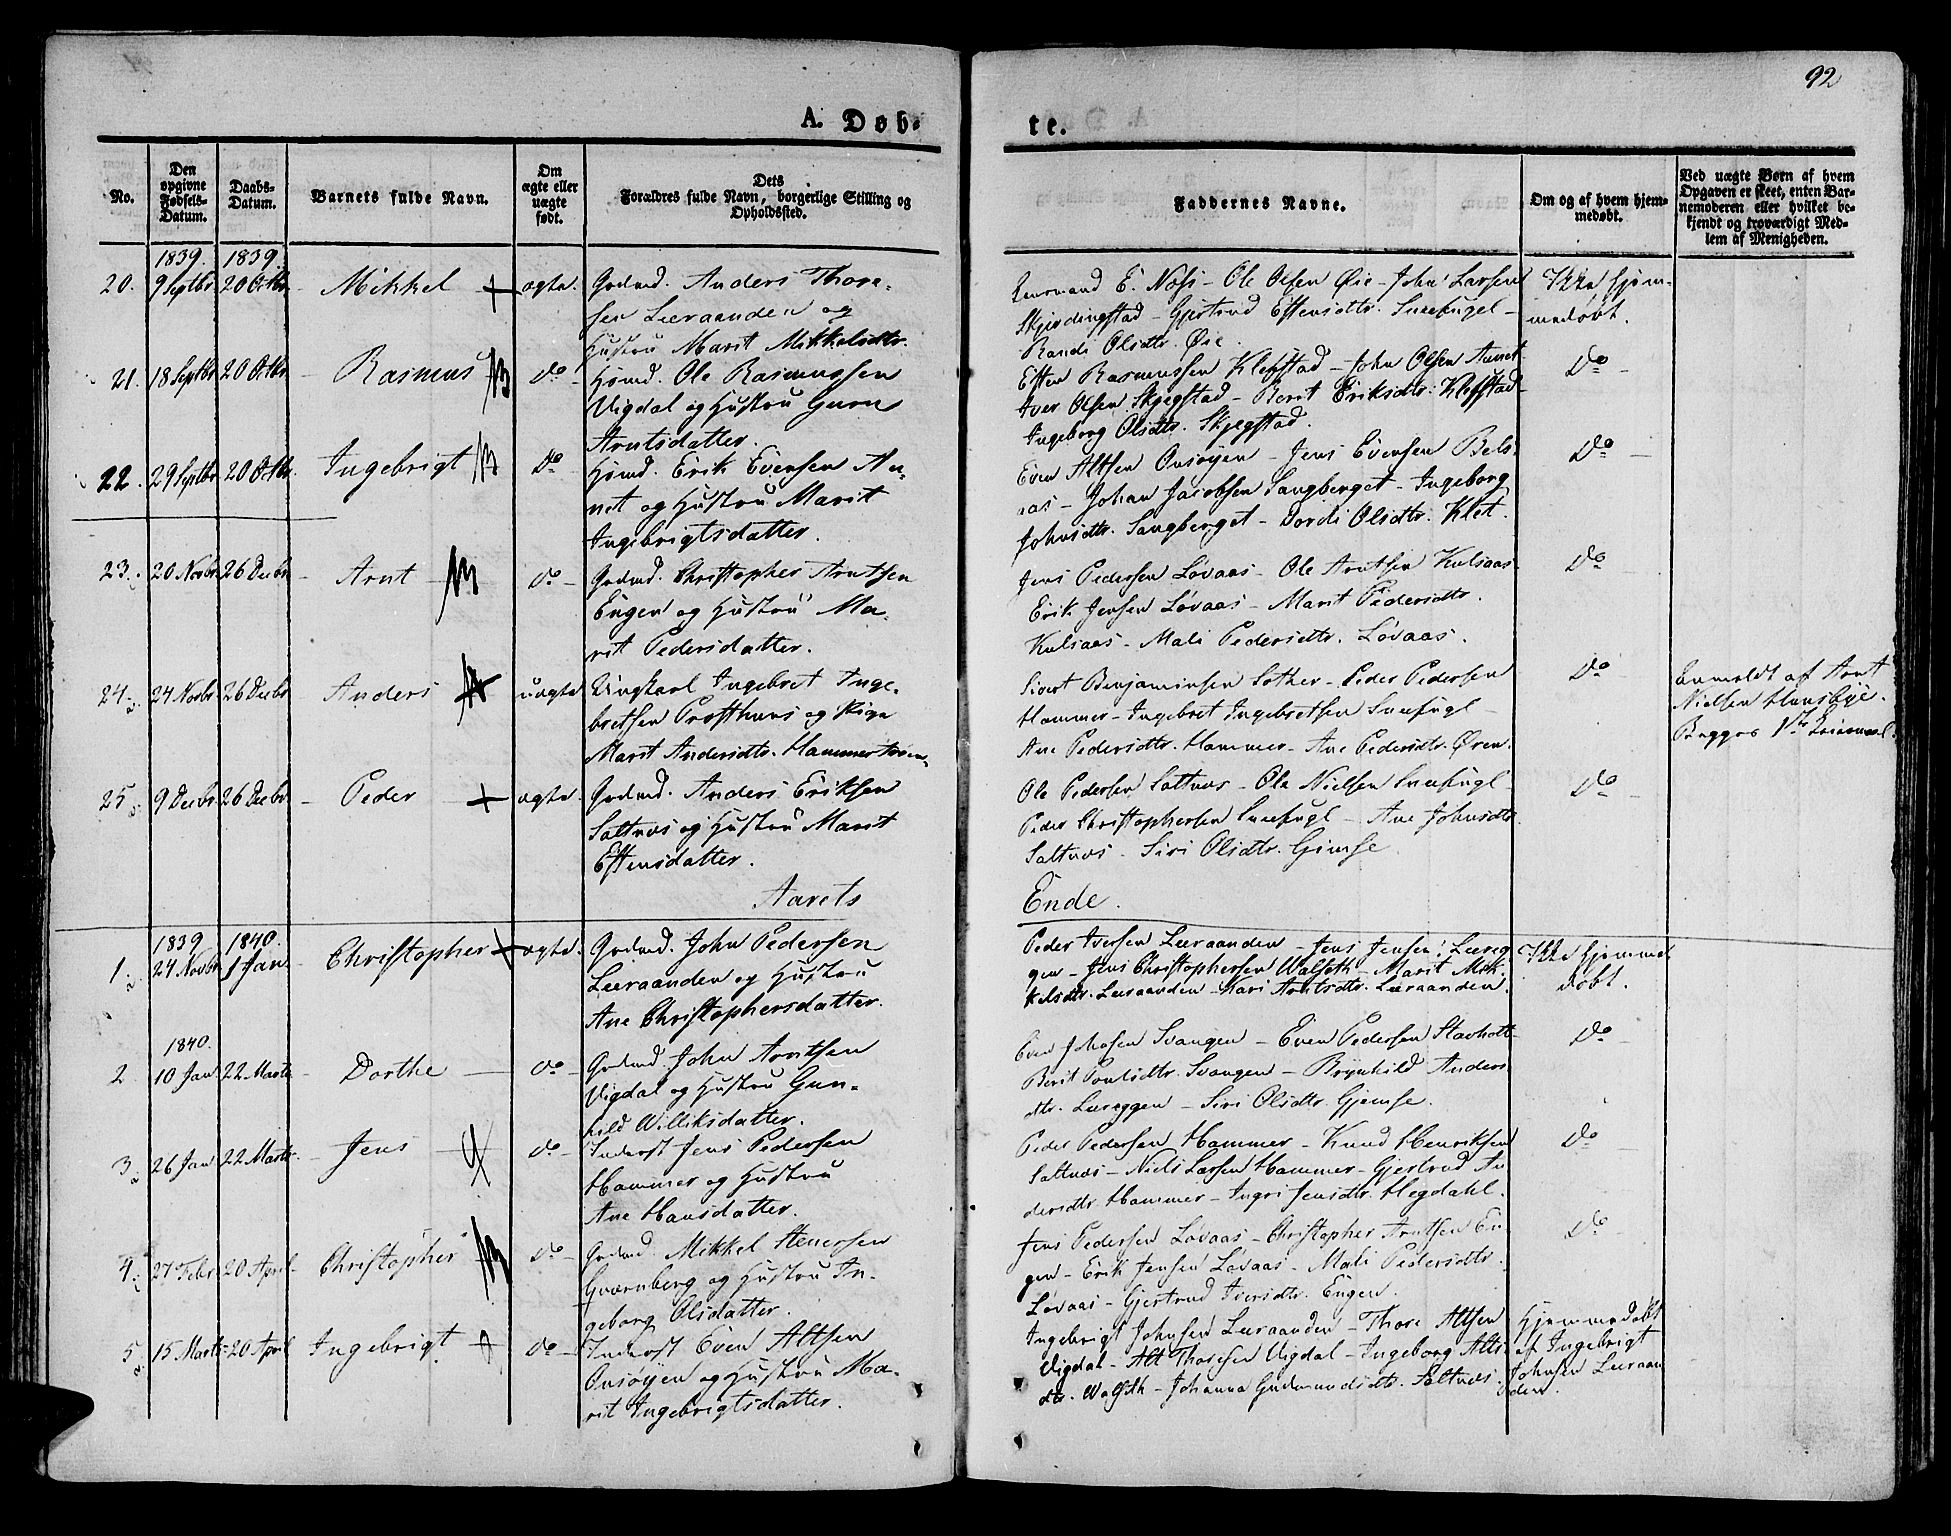 92
A. Døb-
te.
No.
Den
opgivne
Fødsels-
Datum.
Daabs-
Datum.
Barnets fulde Navn.
Om
ægte eller
uægte
født.
Dets
Forældres fulde Navn, borgerlige Stilling og
Opholdssted.
Faddernes Navne.
Om og af hvem hjem-
medøbt.
Ved uægte Børn af hvem
Opgaven er skeet, enten Bar-
nemoderen eller hvilket be-
kjendt og troværdigt Med-
lem af Menigheden.
1839. 1839.
20. 9 Septbr. 20 Octbr. Mikkel ægte. Gadmd. Anders Thore-
sen Leeraanden og
Hustru Marit Mikkelsdtr.
E. Næss - Ole Olsen Øie - John Larsen
Skjerdingstad - Gjertrud Estensdtr. Sneefugel -
Randi Olsdtr. Øie.
Ikke hjem-
medøbt.
21. 18 Septbr. 20 Octbr. Rasmus do Hsmd. Ole Rasmussen
Vigdal og Hustru Guru
Arntsdatter.
Esten Rasmussen Klefstad - John Olsen Aunet
Iver Olsen Skjegstad - Berit Eriksdtr. Klefstad
Ingeborg Olsdtr. Skjegstad.
do
22. 29 Septbr. 20 Octbr. Ingebrigt do Hsmd. Erik Evensen Au-
net og Hustru Marit
Ingebrigtsdatter.
Even Altsen Onsøyen - Jens Evensen Bels-
aas - Johan Jacobsen Sangberget - Ingeborg
Johnsdtr. Sangberget - Dordi Olsdtr. Klet.
do
23. 20 Novbr. 26 Decbr. Arnt do Gadmd. Christopher Arntsen
Engen og Hustru Ma-
rit Pedersdatter.
Jens Pedersen Løvaas - Ole Arntsen Kulsaas
Erik Jensen Løvaas - Marit Pedersdtr.
Kulsaas - Mali Pedersdtr. Løvaas.
do
24. 24 Novbr. 26 Decbr. Anders uægte Ungkarl Ingebret Inge-
bretsen Prosthuus og Pige
Marit Andersdtr. Hammer
Sivert Benjaminsen Sother - Peder Pedersen
Hammer - Ingebret Ingebretsen Sneefugl -
Ane Pedersdtr. Hammer - Ane Pedersdtr. Øren.
do
Anmeldt af Arnt
Nielsen Huusbye.
Begges
25. 9 Decbr. 26 Decbr. Peder ægte. Gadmd. Anders Eriksen
Saltnæs og Hustru Marit
Estensdatter.
Ole Pedersen Saltnæs - Ole Nielsen Sneefugl -
Peder Christophersen Sneefugl - Ane Johnsdtr.
Saltnæs - Siri Olsdtr. Gimse.
do
Aarets
Ende.
1839 1840.
1. 24 Novbr. 1 Jan. Christopher ægte. Gadmd. John Pedersen
Leeraanden og Hustru
Ane Christophersdatter.
Peder Iversen Leeraanden - Jens Jensen Leereg-
gen - Jens Christophersen Walseth - Marit Mik-
kelsdtr. Leeraanden - Kari Arntsdtr. Leeraanden.
Ikke hjemme
døbt.
1840.
2 10 Jan 22 Marts Dorthe do Gadmd. John Arntsen
Vigdal og Hustru Gun-
hild Williksdatter.
Even Johnsen Svangen - Even Pedersen
Berit Poulsdtr. Svangen - Brynhild Anders
dtr. Leereggen - Siri Olsdtr. Gjemse.
do
3. 26 Jan 22 Marts. Jens do Inderst Jens Pedersen
Hammer og Hustru
Ane Hansdatter.
Peder Pedersen Hammer - Knud Henriksen
Saltnæs - Niels Larsen Hammer - Gjertrud An-
dersdtr. Hammer - Ingri Jensdtr. Hegdahl.
do
4. 27 Febr. 20 April Christopher do Gadmd. Mikkel Steuersen
Qværnberg og Hustru In-
geborg Olsdatter.
Jens Pedersen Løvaas - Christopher Arntsen En-
gen - Erik Jensen Løvaas - Mali Pedersdtr.
Løvaas - Gjertrud Iversdtr. Engen.
do
5 15 Marts 20 April Ingebrigt do Inderst Even Altsen
Onsøyen og Hustru Ma-
rit Ingebrigtsdatter.
Ingebrigt Johnsen Leeraanden - Thore Altsen
Vigdal - Alt Thoresen Vigdal - Ingeborg Alts-
dtr. Walseth - Johanna Gudmundsdtr. Saltnæs.
Hjemmedøbt
af Ingebrigt
Johnsen Leeraan
den.